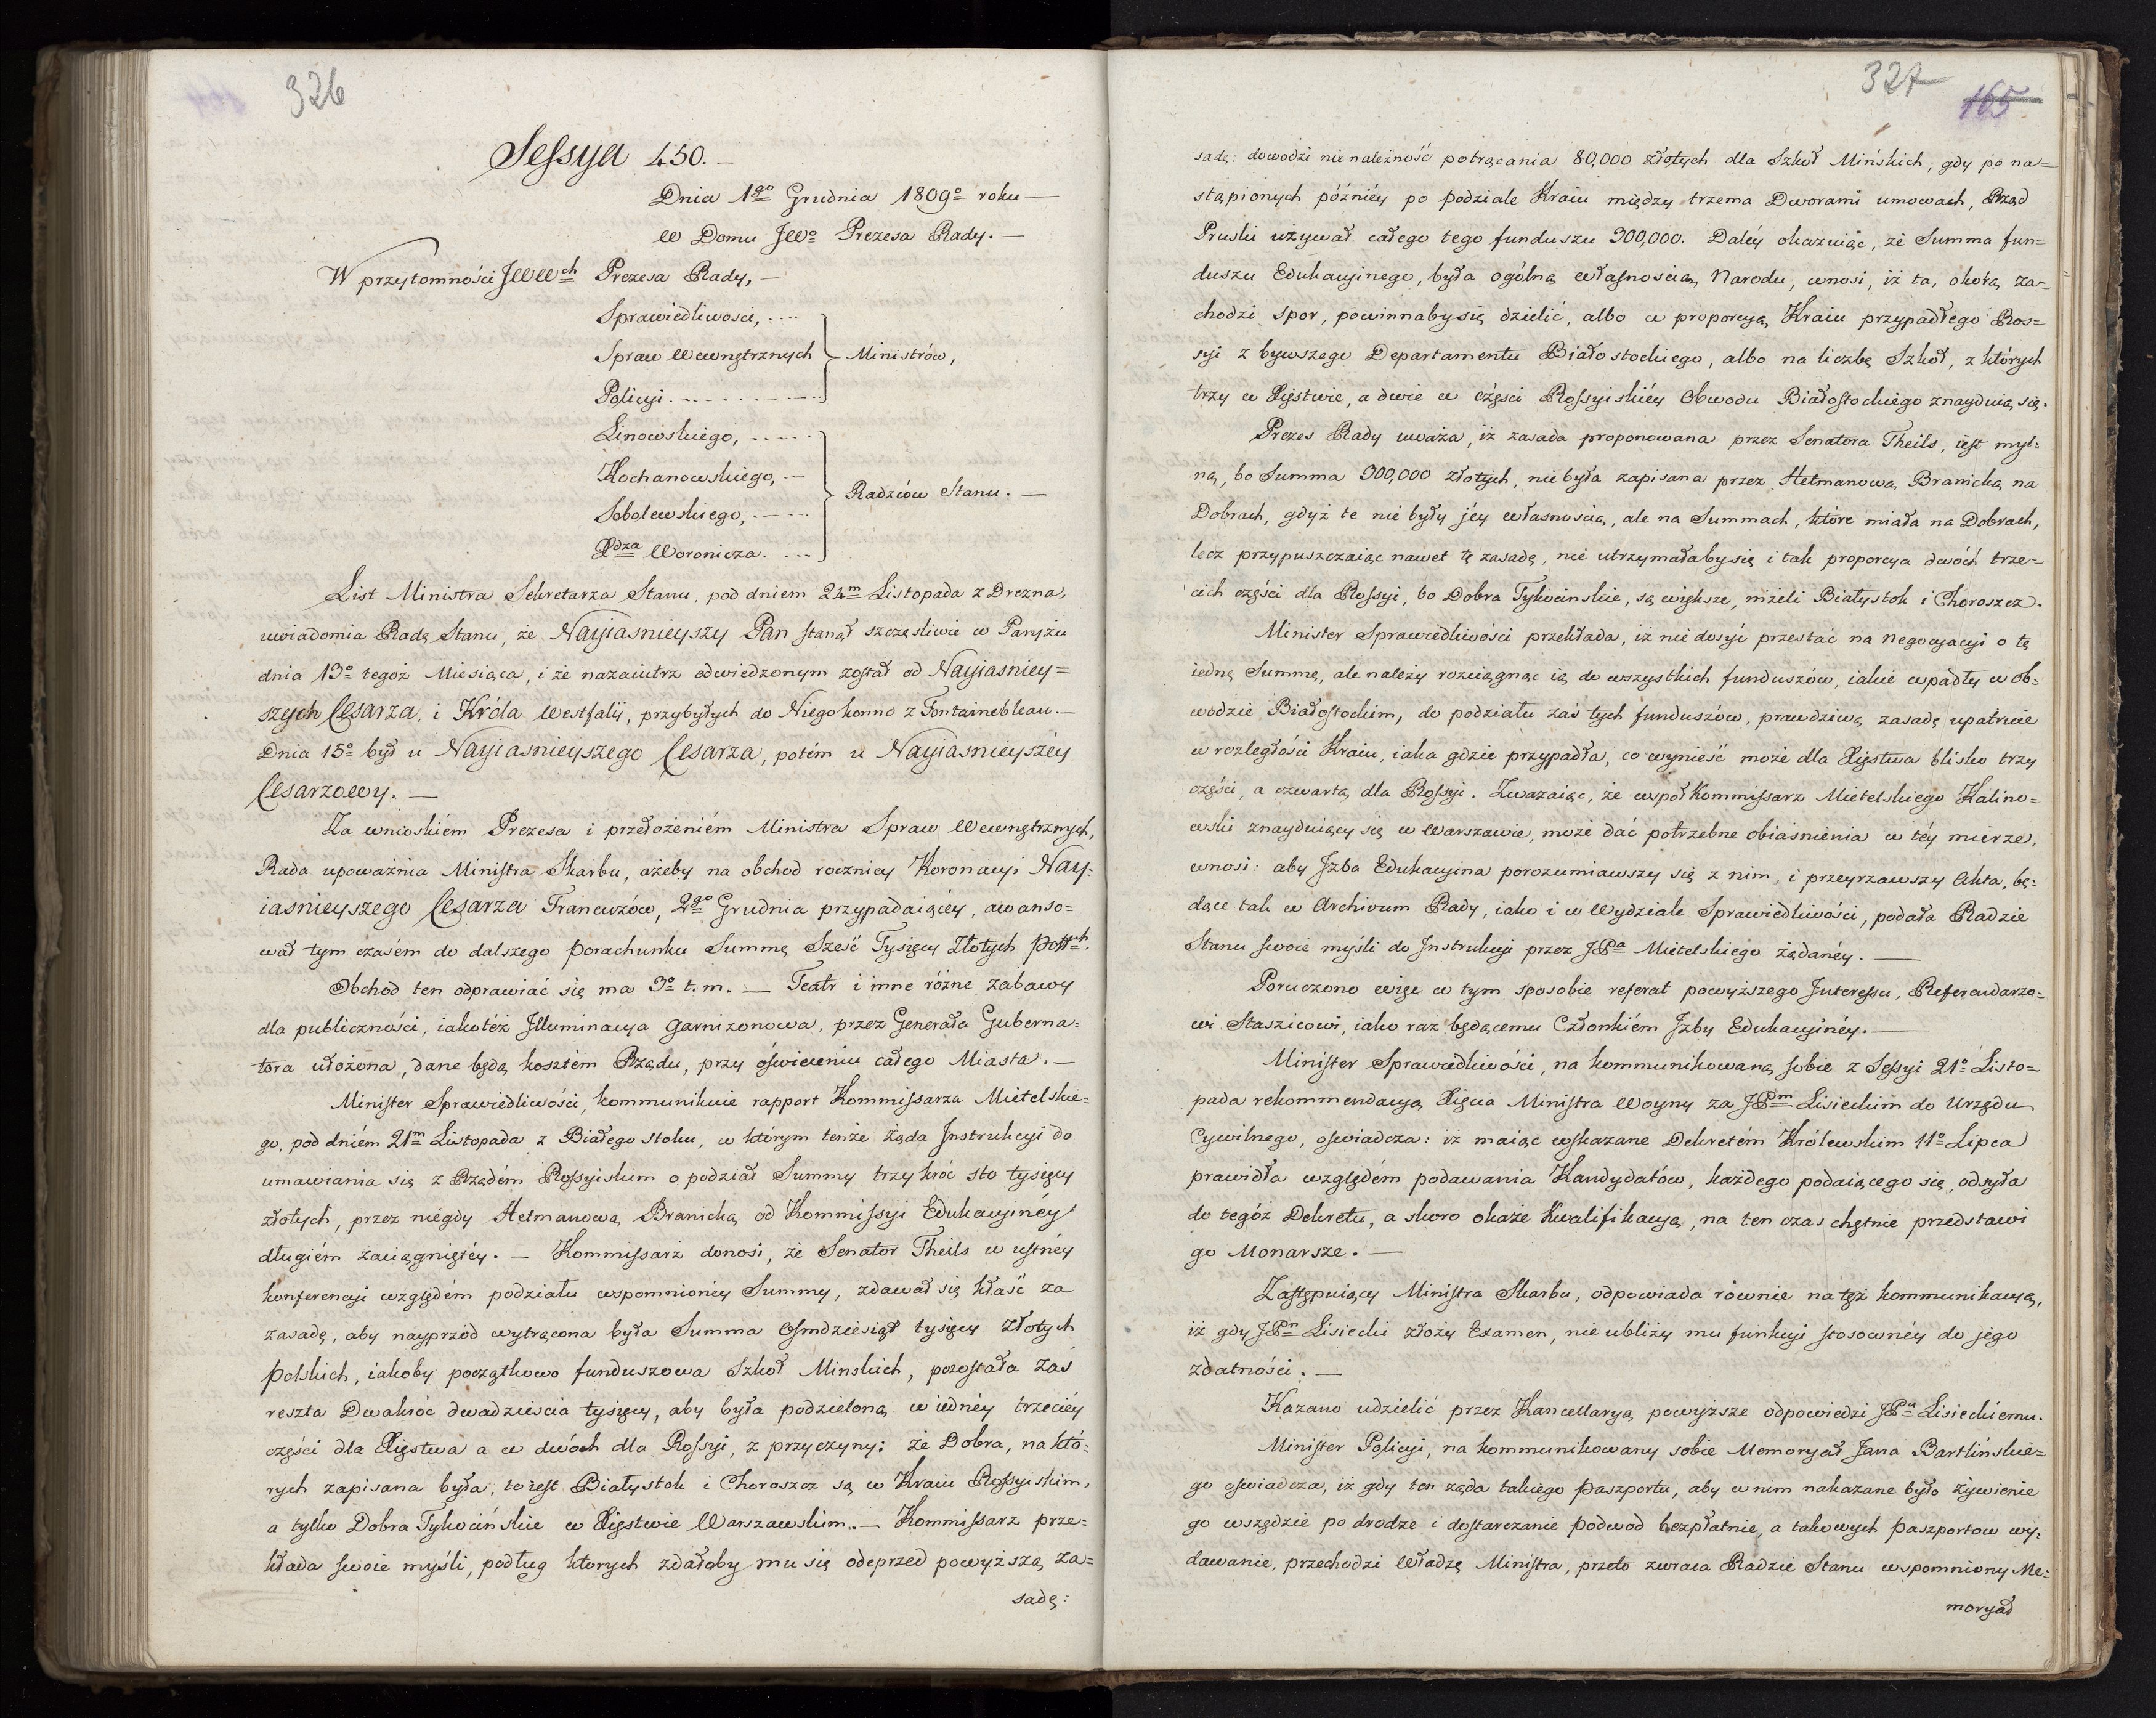 326
Sessya 450. —
Dnia 1go Grudnia 1809o roku —
W Domu JWo Prezesa Rady. —
W przytomności JWWch Prezesa Rady, —
Sprawiedliwosci, ....
Spraw Wewnętrznych } Ministrów,
Policyi ..........
Linowskiego, .....
Kochanowskiego, .—
} Radzców Stanu. —
Sobolewskiego, .....
Xdza Woronicza. ....
List Ministra Sekretarza Stanu, pod dniem 24m Listopada z Drezna,
uwiadomia Radę Stanu, że Nayiasnieyszy Pan stanął szczęsliwie w Paryżu
dnia 13o tegoż Miesiąca, i że nazaiutrz odwiedzonym został od Nayiasniey=
szych Cesarza, i Króla Westfalii, przybyłych do Niego konno z Fontainebleau. —
Dnia 15o był u Nayiasnieyszego Cesarza, potém u Nayiasnieyszéy
Cesarzowy. —
Za wnioskiém Prezesa i przełożeniém Ministra Spraw Wewnętrznych,
Rada upoważnia Ministra Skarbu, ażeby na obchod rocznicy Koronacyi Nay=
iasnieyszego Cesarza Francuzów, 2go Grudnia przypadaiącéy, awanso=
wał tym czasém do dalszego porachunku Summę Sześć Tysięcy Złotych polskch.
Obchod ten odprawiać się ma 3o t. m. — Teatr i inne różne zabawy
dla publiczności, iakotéż Jlluminacya garnizonowa, przez Generała Guberna=
tora ułożona, dane będą kosztém Rządu, przy óświeceniu całego Miasta. —
Minister Sprawiedliwości, kommunikuie rapport Kommissarza Mietelskie=
go, pod dniém 21m Listopada z Białego stoku, w którym tenże żąda Jnstrukcyi do
umawiania się z Rządém Rossyiskim o podział Summy trzy kroć sto tysięcy
złotych, przez niegdy Hetmanową Branicką od Kommissyi Edukacyinéy
długiém zaciągniętéy. — Kommissarz donosi, że Senator Theils w ustnéy
konferencyi względém podziału wspomnioney Summy, zdawał się kłaść za
zasadę, aby nayprzód wytrącona była Summa Osmdziesiąt tysięcy złotych
polskich, iakoby początkowo funduszowa Szkoł Minskich, pozostała zaś
reszta Dwakroć dwadzieścia tysięcy, aby była podzieloną w iednéy trzeciéy
części dla Xięstwa a w dwóch dla Rossyi, z przyczyny: że Dobra, na któ=
rych zapisana była, to iest Białystok i Choroszcz są w Kraiu Rossyiskim,
a tylko Dobra Tykocińskie w Xięstwie Warszawskim. — Kommissarz prze=
kłada swoie myśli, podług ktorych zdałoby mu się odeprzeć powyższą za=
sadę:
327
165
sadę: dowodzi nienależność potrącania 80,000 złotych dla Szkoł Mińskich, gdy po na=
stąpionych późniéy po podziale Kraiu między trzema Dworami umowach, Rząd
Pruski używał całego tego funduszu 300,000. Daléy okazuiąc, że Summa fun=
duszu Edukacyinego, była ogólną własnością Narodu, wnosi, iż ta, o którą za=
chodzi spor, powinnaby się dzielić, albo w proporcyą Kraiu przypadłego Ros=
syi z bywszego Departamentu Białostockiego, albo na liczbę Szkoł, z których
trzy w Xięstwie, a dwie w części Rossyiskiéy Obwodu Białostockiego znayduią się.
Prezes Rady uważa, iż zasada proponowana przez Senatora Theils, iest myl=
ną, bo Summa 300,000 złotych, nie była zapisana przez Hetmanową Branicką na
Dobrach, gdyż te nie były jéy własnością, ale na Summach, które miała na Dobrach,
lecz przypuszczaiąc nawet tę zasadę, nie utrzymałaby się i tak proporcya dwóch trze=
cich części dla Rossyi, bo Dobra Tykocinskie, są większe, niżeli Białystok i Choroszcz.
Minister Sprawiedliwości przekłada, iż nie dosyć przestać na negocyacyi o tę
iednę Summę, ale należy rozciągnąć ią do wszystkich funduszów, iakie wpadły w ob=
wodzie Białostockim, do podziału zaś tych funduszów, prawdziwą zasadę upatruie
w rozległości Kraiu, iaka gdzie przypadła, co wynieść może dla Xięstwa blisko trzy
części, a czwartą dla Rossyi. Zważaiąc, że wspołKommissarz Mietelskiego Kalino=
wski znayduiący się w Warszawie, może dać potrzebne obiaśnienia w téy mierze,
wnosi: aby Jzba Edukacyina porozumiawszy się z nim, i przeyrzawszy Akta, bę=
dące tak w Archivum Rady, iako i w Wydziale Sprawiedliwości, podała Radzie
Stanu swoie myśli do Jnstrukcyi przez JPa Mietelskiego żądanéy. —
Poruczono więc w tym sposobie referat powyższego Jnteressu, Referendarzo=
wi Staszicowi, iako raz będącemu Członkiém Jzby Edukacyinéy. —
Minister Sprawiedliwości, na kommunikowaną sobie z Sessyi 21o Listo=
pada rekommendacyą Xięcia Ministra Woyny za JPm Lisieckim do Urzędu
Cywilnego, oświadcza: iż maiąc wskazane Dekretém Królewskim 11o Lipca
prawidła względém podawania Kandydatów, każdego podaiącego się, odsyła
do tegóż Dekretu, a skoro okaże Kwalifikacyą, na ten czas chętnie przedstawi
go Monarsze. —
Zastępuiący Ministra Skarbu, odpowiada równie na tęż kommunikacyą,
iż gdy JPn Lisiecki złoży Examen, nie ubliży mu funkcyi stosownéy do jego
zdatności. —
Kazano udzielić przez Kancellaryą powyższe odpowiedzi JPu Lisieckiemu.
Minister Policyi, na kommunikowany sobie Memoryał Jana Bartlińskie=
go oświadcza, iż gdy ten żąda takiego paszportu, aby w nim nakazane było żywienie
go wszędzie po drodze i dostarczanie podwod bezpłatnie, a takowych paszportow wy=
dawanie, przechodzi Władzę Ministra, przeto zwraca Radzie Stanu wspomniony Me=
moryał